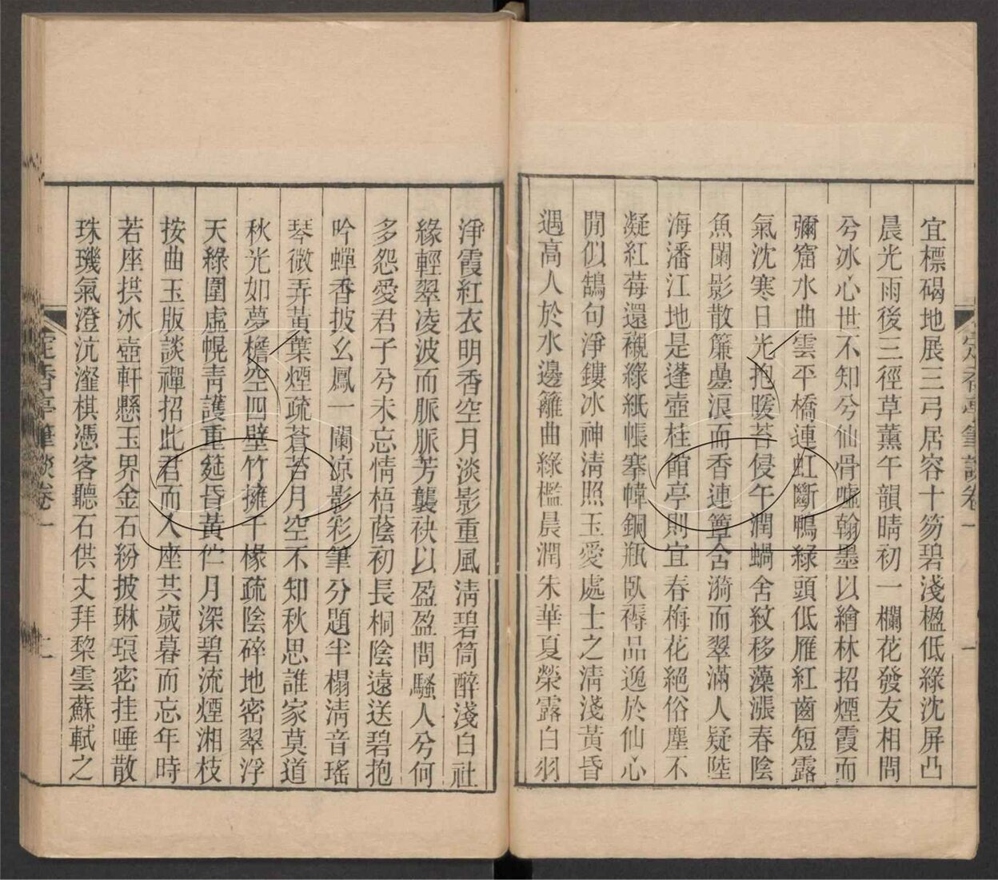 宜標碣地展三弓居容十笏碧淺楹低綠沈屏凸
晨光雨後三徑草薰午韻晴初一欄花發友相問
兮冰心世不知兮仙骨噓翰墨以繪林招煙霞而
彌窟水曲雲平橋連虹斷鴨綠頭低雁紅齒短露
氣沈寒日光抱暖苔侵午潤蝸舍紋移藻漲春陰
魚闌影散簾疊浪而香連簟含漪而翠滿人疑陸
海潘江地是蓬壺桂館亭則宜春梅花絕俗塵不
凝紅莓還襯綠紙帳塞幃銅瓶臥褥品逸於仙心
閒似鶴句淨鏤冰神清照玉愛處士之清淺黃昏
遇高人於水邊籬曲綠檻晨潤朱華夏榮露白羽
定香亭筆談卷一
淨霞紅衣明香空月淡影重風清碧筒醉淺白社
緣輕翠凌波而脈脈芳襲袂以盈盈問騷人兮何
多怨愛君子兮未忘情梧蔭初長桐陰遠送碧抱
吟蟬香披幺鳳一闌涼影彩筆分題半榻清音瑤
琴微弄黃葉煙疏蒼苔月空不知秋思誰家莫道
秋光如夢檐空四壁竹擁千椽疏陰碎地密翠浮
天綠圍虛幌青護重筵昏黃伫月深碧流煙湘枝
按曲玉版談禪招此君而入座共歲暮而忘年時
若座拱冰壺軒懸玉界金石紛披琳琅密挂唾散
珠璣氣澄沆瀣棋憑客聽石供丈拜黎雲蘇軾之
定香亭筆談卷一